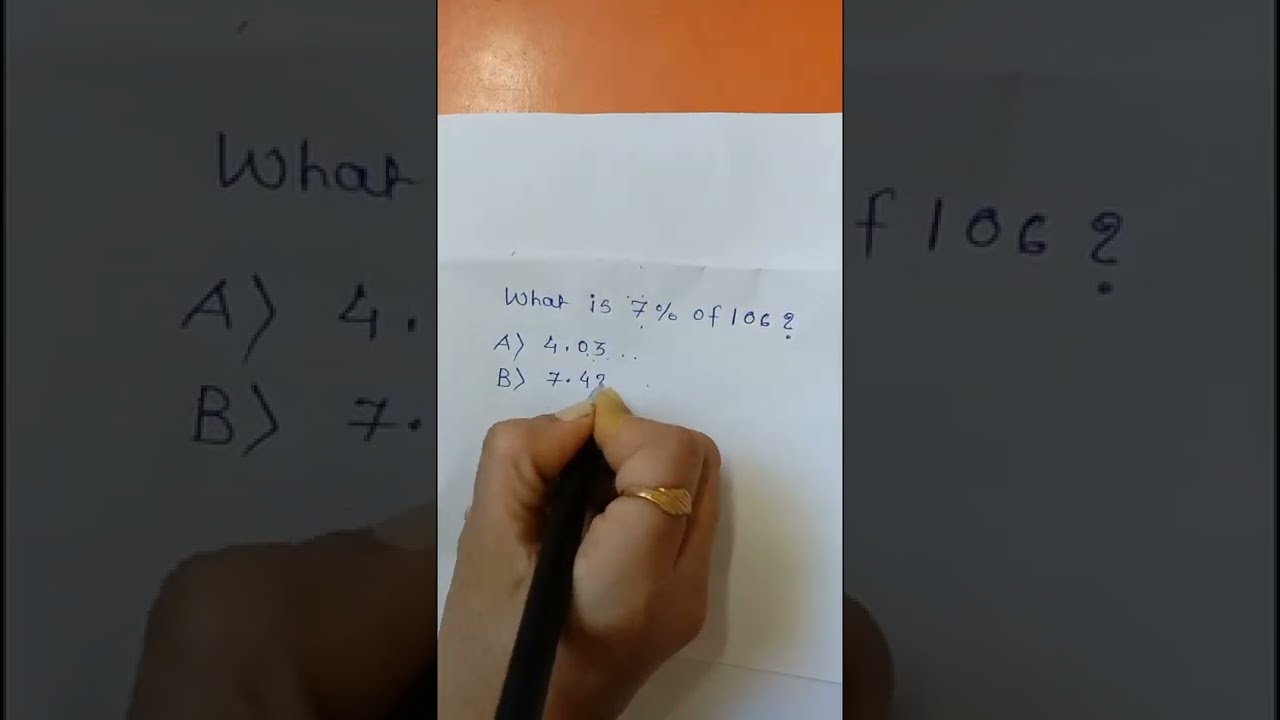 What is 7% of 106?
A) 4.03...
B) 7.42